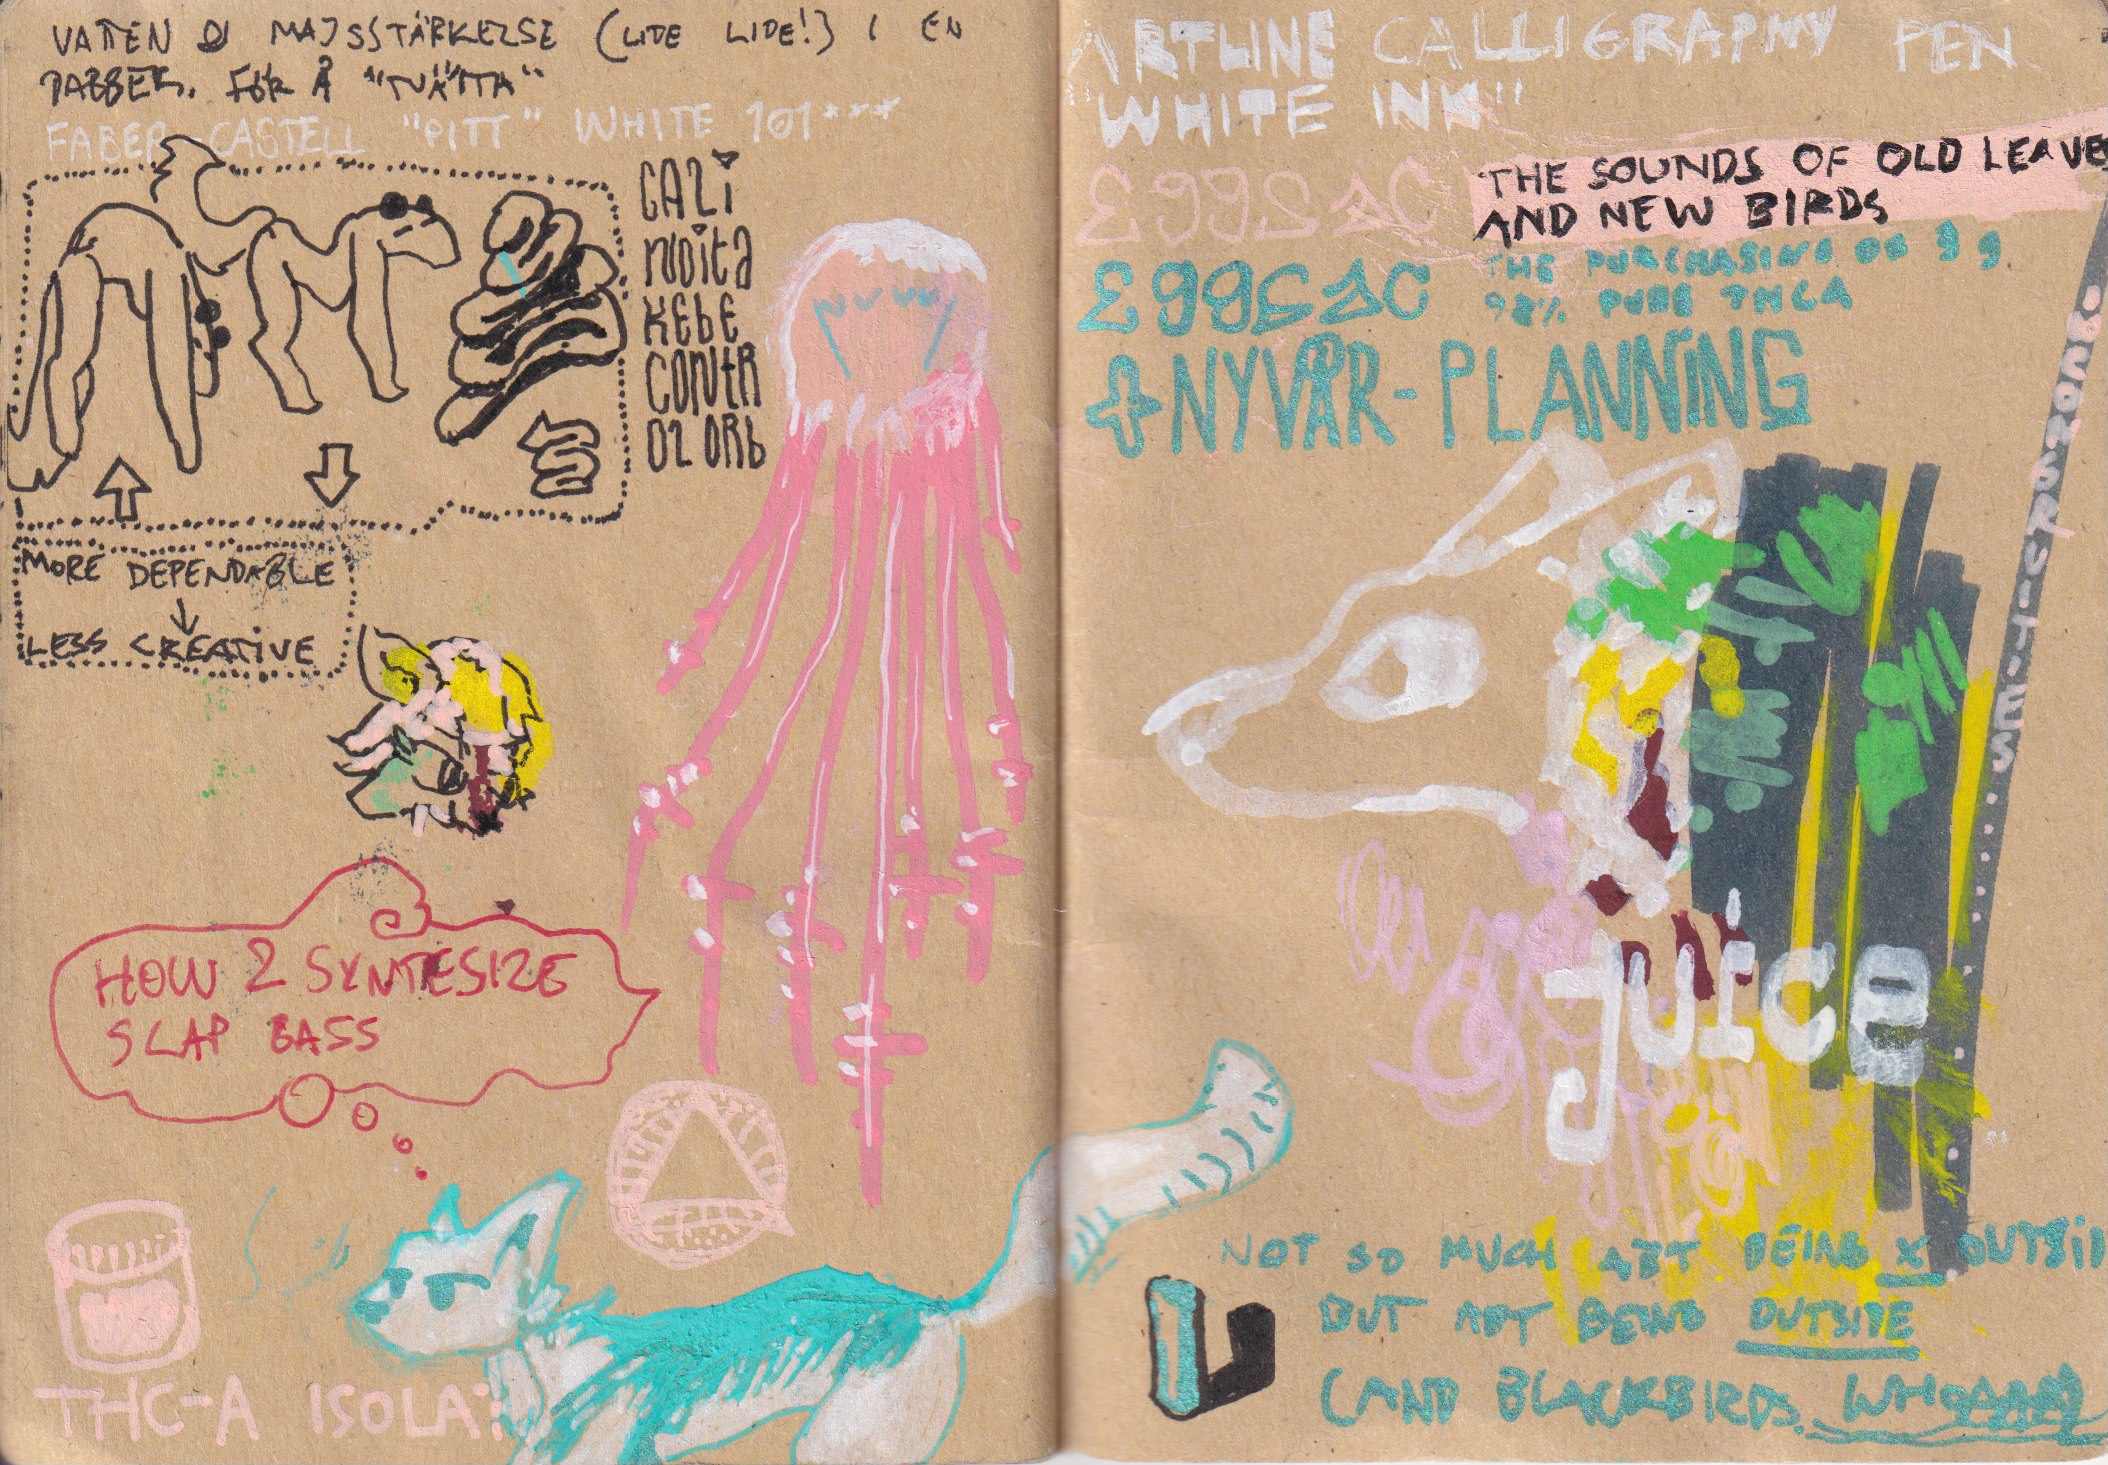 VATTEN & MAJSSTÄRKELSE (LITE LIDE!) I EN
DABBER. FÖR Å "TVÄTTA"
FABER-CASTELL "PITT" WHITE 101***
CALI
NOITA
KEBE
CONTR
OL ORB
MORE DEPENDABLE
↓
LESS CREATIVE
HOW 2 SYNTESIZE
SLAP BASS
THC-A ISOLAT
ARTLINE CALLIGRAPHY PEN
"WHITE INK"
THE SOUNDS OF OLD LEAVES
AND NEW BIRDS
THE PURCHASING OF 3 g
98% PURE THCA
& NYVÅR-PLANNING
juice
NOT SO MUCH ABT BEING X OUTSIDE
BUT ABT BEING OUTSIDE
(AND BLACKBIRDS. WHOAAAA)